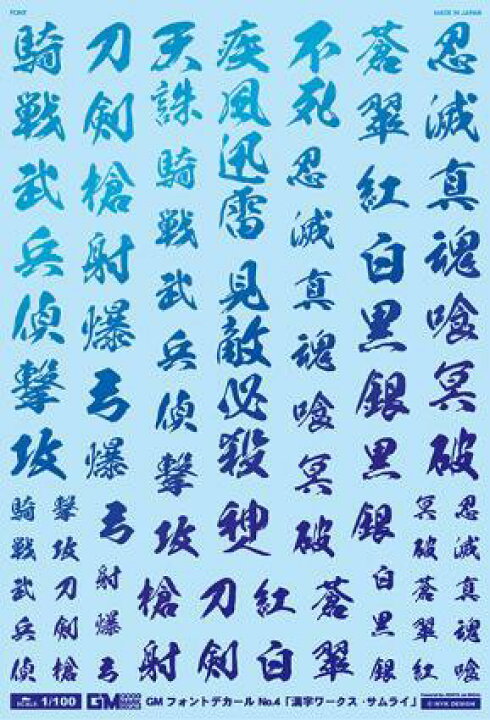 FONT
MADE IN JAPAN
忍滅真魂喰冥破
蒼翠紅白黒銀黒銀
不死忍滅真魂喰冥破
疾風迅雷見敵必殺
天誅騎戦武兵偵撃攻
刀剣槍射爆弓爆弓
騎戦武兵偵撃攻
忍滅真魂喰
冥破蒼翠紅
白黒銀
蒼翠
紅白
刀剣
槍射
射爆弓
撃攻刀剣槍
騎戦武兵偵
1/100 GM GM フォントデカール No.4「漢字ワークス・サムライ」
© HYK DESIGN